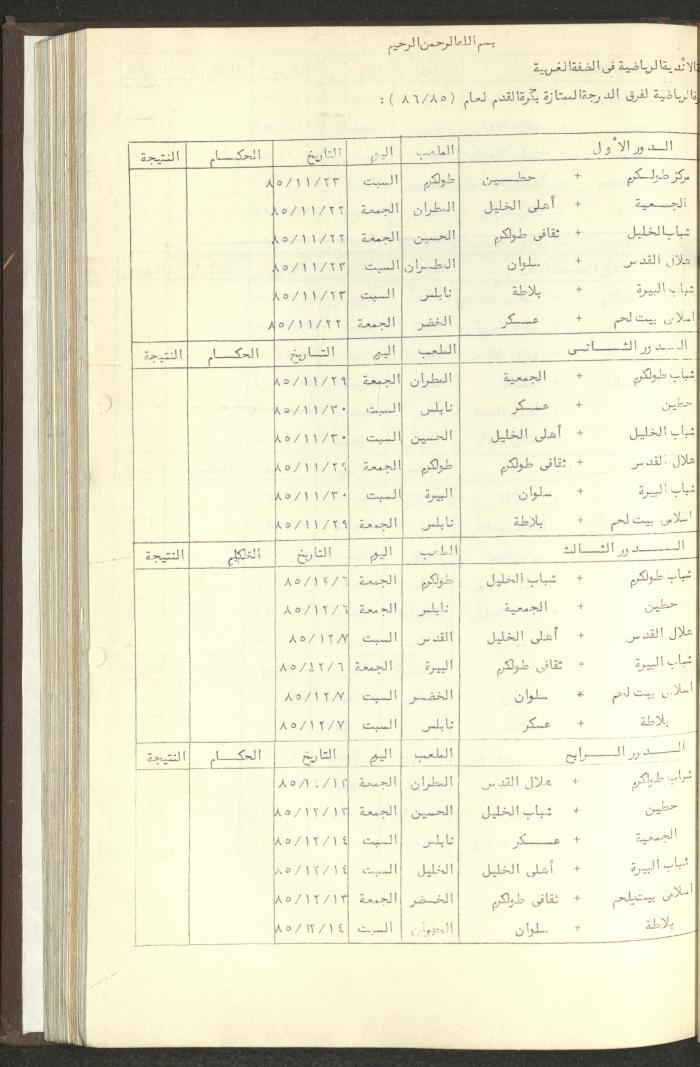 بسم الله الرحمن الرحيم
الأندية الرياضية في الضفة الغربية
الرياضية لفرق الدرجة الممتازة بكرة القدم لعام (٨٦/٨٥):
الـدور الأول الملعب اليوم التاريخ الحكـــام النتيجة
مركز طولكرم + حطـــين طولكرم السبت ٨٥/١١/٢٣
الجمعية + أهلي الخليل المطران الجمعة ٨٥/١١/٢٢
شباب الخليل + ثقافي طولكرم الحسين الجمعة ٨٥/١١/٢٢
هلال القدس + سلوان المطـران السبت ٨٥/١١/٢٣
شباب البيرة + بلاطة نابلس السبت ٨٥/١١/٢٣
اسلامي بيت لحم + عسـكر الخضر الجمعة ٨٥/١١/٢٢
الـدور الثـــاني الملعب اليوم التـاريخ الحكـــام النتيجة
شباب طولكرم + الجمعية المطران الجمعة ٨٥/١١/٢٩
حطين + عسـكر نابلس السبت ٨٥/١١/٣٠
شباب الخليل + أهلي الخليل الحسين السبت ٨٥/١١/٣٠
هلال القدس + ثقافي طولكرم طولكرم الجمعة ٨٥/١١/٢٩
شباب البيرة + سلوان البيرة السبت ٨٥/١١/٣٠
اسلامي بيت لحم + بلاطة نابلس الجمعة ٨٥/١١/٢٩
الـــدور الثـالث الملعب اليوم التاريخ النتيجة
شباب طولكرم + شباب الخليل طولكرم الجمعة ٨٥/١٢/٦
حطين + الجمعية نابلس الجمعة ٨٥/١٢/٦
هلال القدس + أهلي الخليل القدس السبت ٨٥/١٢/٧
شباب البيرة + ثقافي طولكرم البيرة الجمعة ٨٥/١٢/٦
اسلامي بيت لحم + سلوان الخضـر السبت ٨٥/١٢/٧
بلاطة + عسكر نابلس السبت ٨٥/١٢/٧
الـــدور الـــرابع الملعب اليوم التاريخ الحكـــام النتيجة
شباب طولكرم + هلال القدس المطران الجمعة
حطين + شباب الخليل الحسين الجمعة ٨٥/١٢/١٣
الجمعية + عســـكر نابلس السبت ٨٥/١٢/١٤
شباب البيرة + أهلي الخليل الخليل السبت ٨٥/١٢/١٤
اسلامي بيت لحم + ثقافي طولكرم الخضر الجمعة ٨٥/١٢/١٣
بلاطة + سلوان السبت ٨٥/١٢/١٤